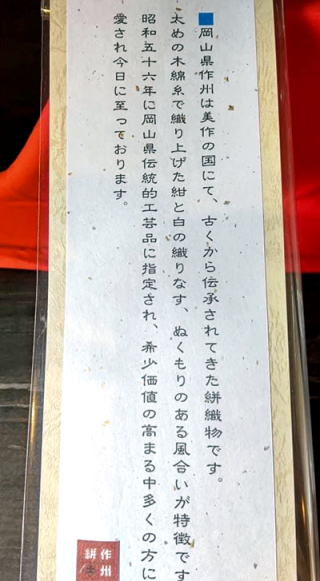 ■岡山県作州は美作の国にて、古くから伝承されてきた絣織物です。
太めの木綿糸で織り上げた紺と白の織りなす、ぬくもりのある風合いが特徴です
昭和五十六年に岡山県伝統的工芸品に指定され、希少価値の高まる中多くの方に
愛され今日に至っております。
作州
絣